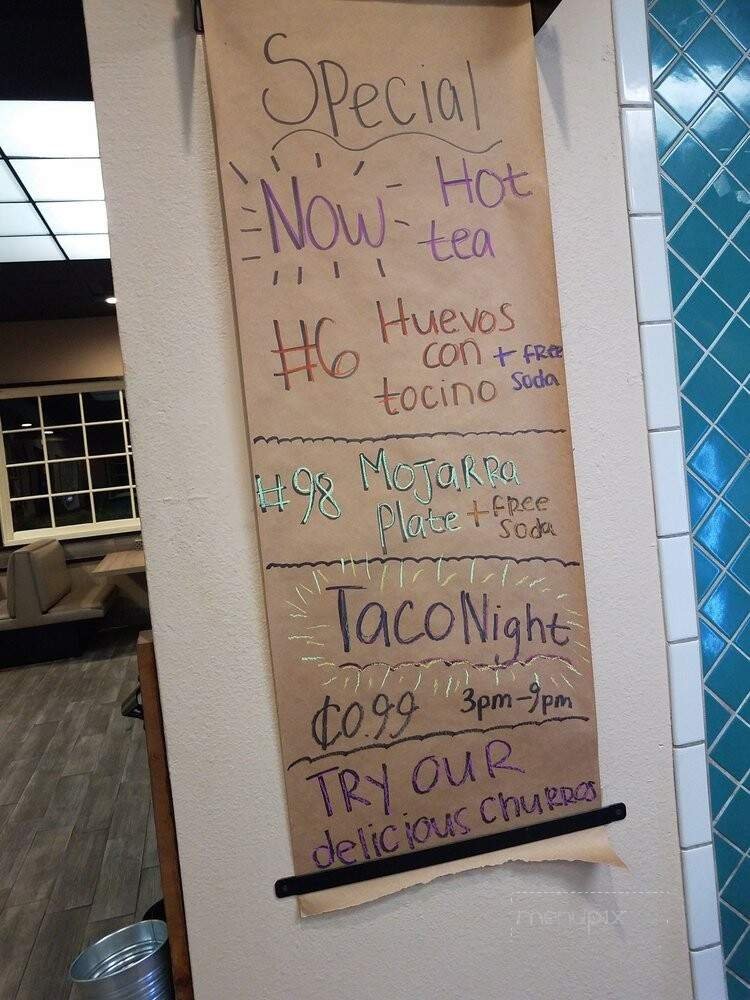 Special
Now Hot
tea
#6 Huevos
con + free
tocino soda
#98 Mojarra
Plate + free
soda
Taco Night
¢0.99 3pm-9pm
TRY OUR
delicious churros
menupix